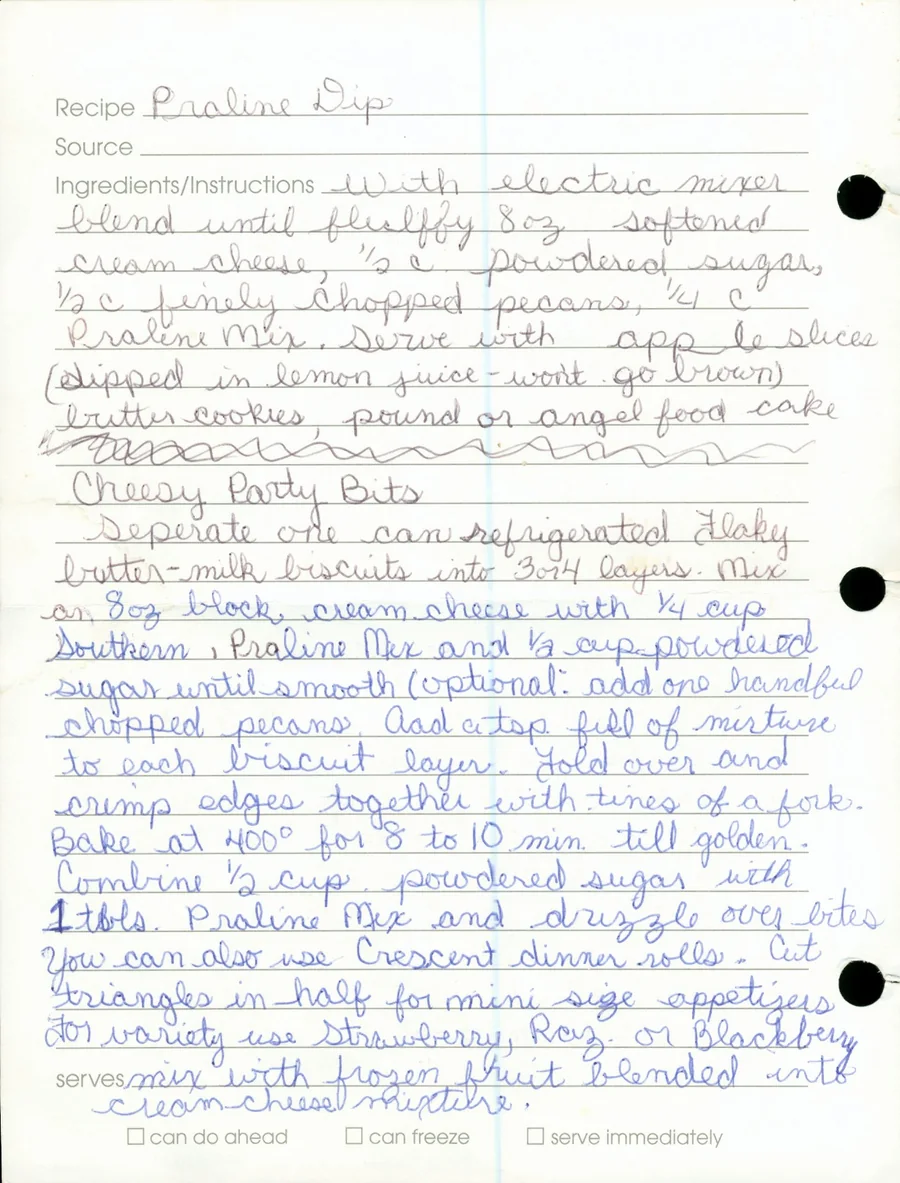 Recipe Praline Dip
Source
Ingredients/Instructions With electric mixer
blend until fluffy 8oz softened
cream cheese, 1/2 c powdered sugar,
1/2 c finely chopped pecans, 1/4 c
Praline Mix. Serve with apple slices
(dipped in lemon juice - won't go brown)
butter cookies, pound or angel food cake
Cheesy Party Bits
Seperate one can refrigerated Flaky
butter-milk biscuits into 3or4 layers. Mix
an 8oz block cream cheese with 1/4 cup
Southern, Praline Mix and 1/2 cup powdered
sugar until smooth (optional: add one handful
chopped pecans. Add a tsp full of mixture
to each biscuit layer. Fold over and
crimp edges together with tines of a fork.
Bake at 400° for 8 to 10 min. till golden.
Combine 1/2 cup powdered sugar with
1 tbls. Praline Mix and drizzle over bites
You can also use Crescent dinner rolls. Cut
triangles in half for mini size appetizers
For variety use Strawberry, Raz. or Blackberry
serves mix with frozen fruit blended into
cream cheese mixture.
☐ can do ahead ☐ can freeze ☐ serve immediately